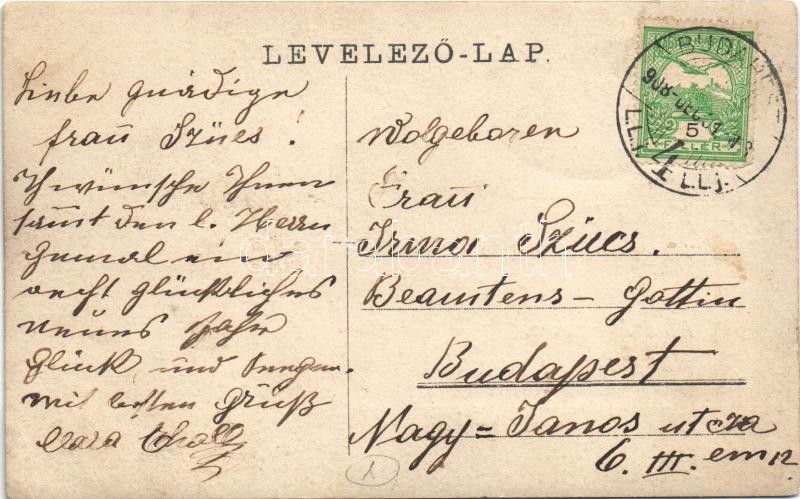 LEVELEZŐ-LAP.
Liebe gnädige
frau Szücs!
Ich wünsche Ihnen
samt den l. Herrn
Gemal ein
recht glückliches
neues Jahr
Glück und Seegen.
mit besten Gruß
Wolgeboren
Frau
Irma Szücs.
Beamtens-Gattin
Budapest
Nagy=Janos utcza
6. III. em 12
BUDAPEST
908 DEC
5
FILLÉR
darabanth
1